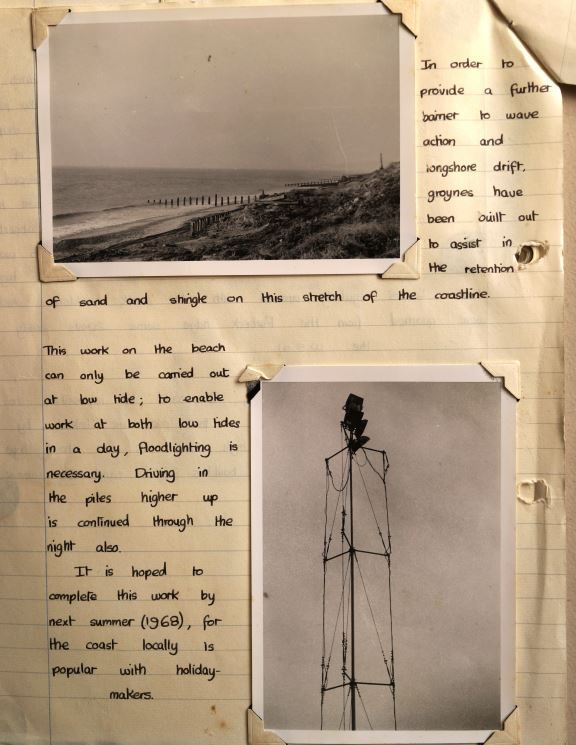 In order to
provide a further
barrier to wave
action and
longshore drift,
groynes have
been built out
to assist in
the retention
of sand and shingle on this stretch of the coastline.
This work on the beach
can only be carried out
at low tide; to enable
work at both low tides
in a day, floodlighting is
necessary. Driving in
the piles higher up
is continued through the
night also.
It is hoped to
complete this work by
next summer (1968), for
the coast locally is
popular with holiday-
makers.